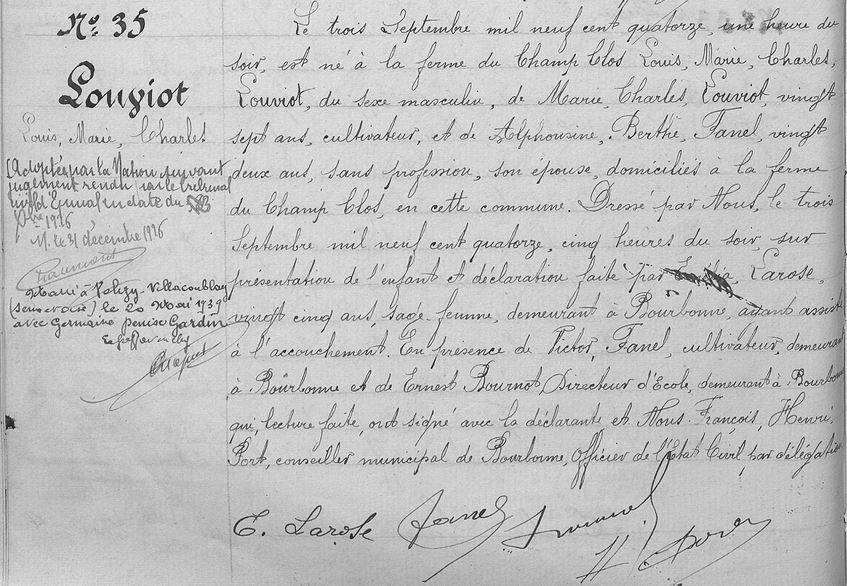 N.º 35
Louviot
Louis, Marie, Charles
(Adopté par la Nation suivant
jugement rendu par le tribunal
civil d'Epinal en date du 23
Xbre 1926
M. Le 31 décembre 1926
Marié à Velizy-Villacoublay
(Seine et Oise) le 20 Mai 1939
avec Germaine Denise Gardin
Le greffier en chef
Le trois Septembre mil neuf cent quatorze, une heure du
soir, est né à la ferme du Champ Clos Louis, Marie, Charles,
Louviot, du sexe masculin, de Marie, Charles, Louviot, vingt
sept ans, cultivateur, et de Alphonsine, Berthe, Fanel, vingt
deux ans, sans profession, son épouse, domiciliés à la ferme
du Champ Clos, en cette commune. Dressé par Nous, le trois
Septembre mil neuf cent quatorze, cinq heures du soir, sur
présentation de l'enfant et déclaration faite par Larose,
vingt cinq ans, sage femme, demeurant à Bourbonne, ayant assisté
à l'accouchement. En présence de Victor, Fanel, cultivateur, demeurant
à Bourbonne et de Ernest Bournot, Directeur d'Ecole, demeurant à Bourbonne
qui, lecture faite, ont signé avec la déclarante et Nous. François, Henri,
Port, conseiller municipal de Bourbonne, Officier de l'Etat Civil par délégation
E. Larose Fanel